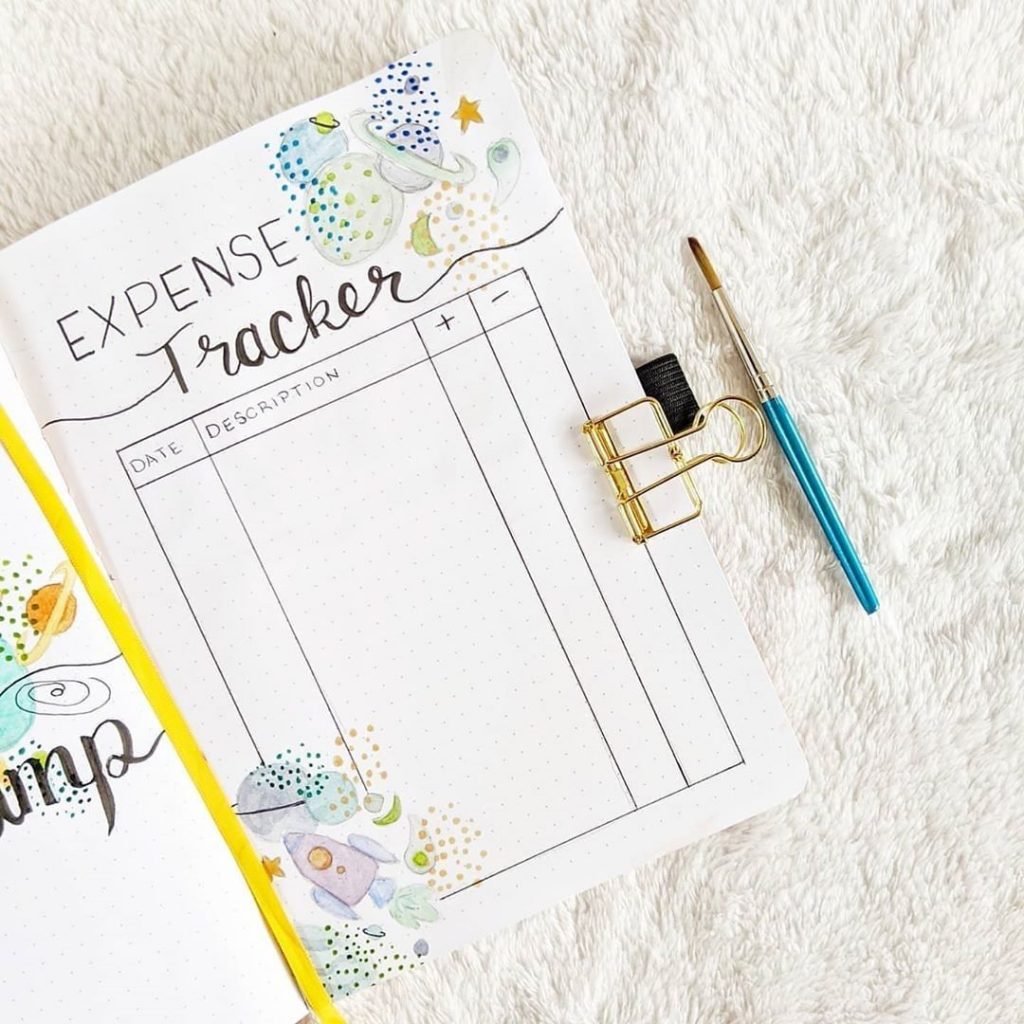 EXPENSE
Tracker
DATE DESCRIPTION + -